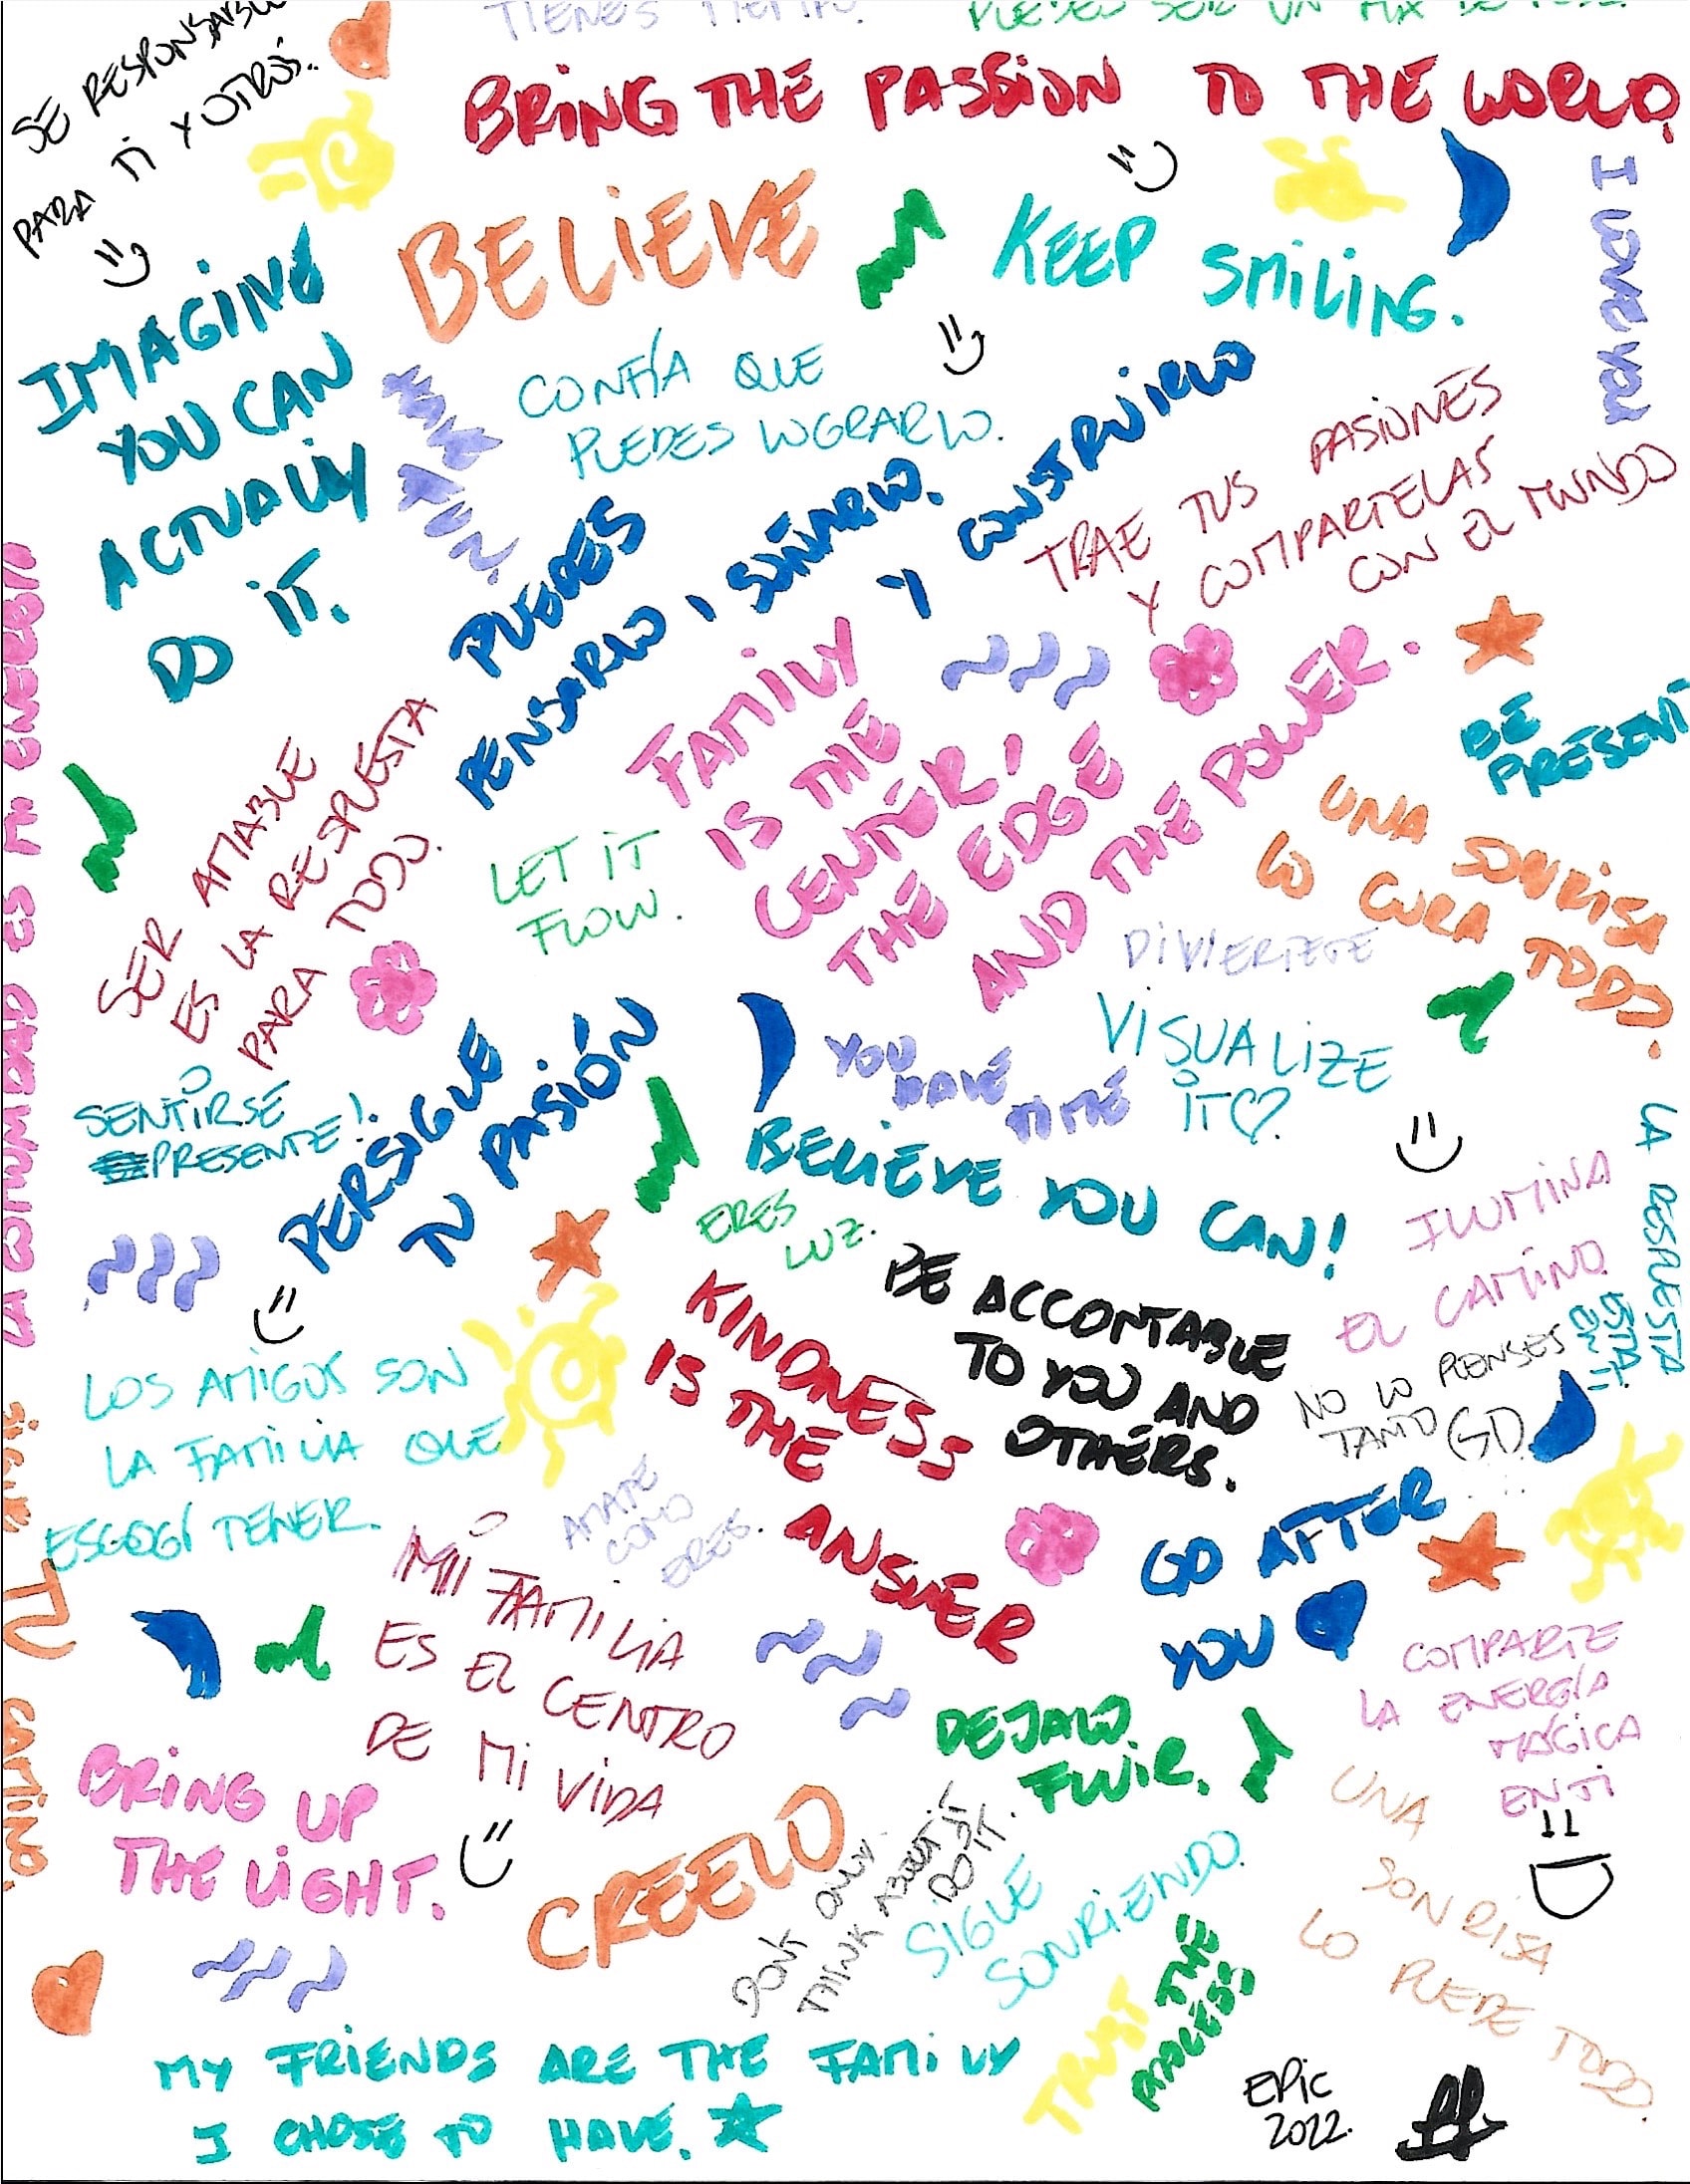 TIENES TIEMPO.
PUEDES SER UN
SE RESPONSABLE
PARA TI Y OTROS.
BRING THE PASSION TO THE WORLD
BELIEVE
KEEP SMILING.
I LOVE YOU
IMAGINE
YOU CAN
ACTUALLY
DO IT.
HAVE
FUN.
CONFÍA QUE
PUEDES LOGRARLO.
PUEDES
PENSARLO, SOÑARLO.
Y CONSTRUIRLO
TRAE TUS PASIONES
Y COMPARTELAS
CON EL MUNDO
LA COMUNIDAD ES MI ENERGÍA
FAMILY
IS THE
CENTER,
THE EDGE
AND THE POWER.
BE
PRESENT
UNA SONRISA
LO CURA TODO.
SER AMABLE
ES LA RESPUESTA
PARA TODO.
LET IT
FLOW.
DIVIERTETE
VISUALIZE
IT
YOU
HAVE
TIME
SENTIRSE
PRESENTE!
PERSIGUE
TU PASIÓN
BELIEVE YOU CAN!
ERES
LUZ.
ILUMINA
EL CAMINO
LA RESPUESTA
ESTA
EN TI
BE ACCONTABLE
TO YOU AND
OTHERS.
KINDNESS
IS THE
ANSWER
NO LO PIENSES
TANTO
LOS AMIGOS SON
LA FAMILIA QUE
ESCOGÍ TENER.
AMATE
COMO
ERES.
GO AFTER
YOU
SIGUE
TU
CAMINO.
MI FAMILIA
ES EL CENTRO
DE MI VIDA
COMPARTE
LA ENERGÍA
MÁGICA
EN TI
DEJALO
FLUIR.
BRING UP
THE LIGHT.
CREELO
DONT ONLY
THINK ABOUT IT
DO IT.
SIGUE
SONRIENDO.
UNA
SONRISA
LO PUEDE TODO.
TRUST THE
PROCESS
MY FRIENDS ARE THE FAMILY
I CHOSE TO HAVE.
EPIC
2022.